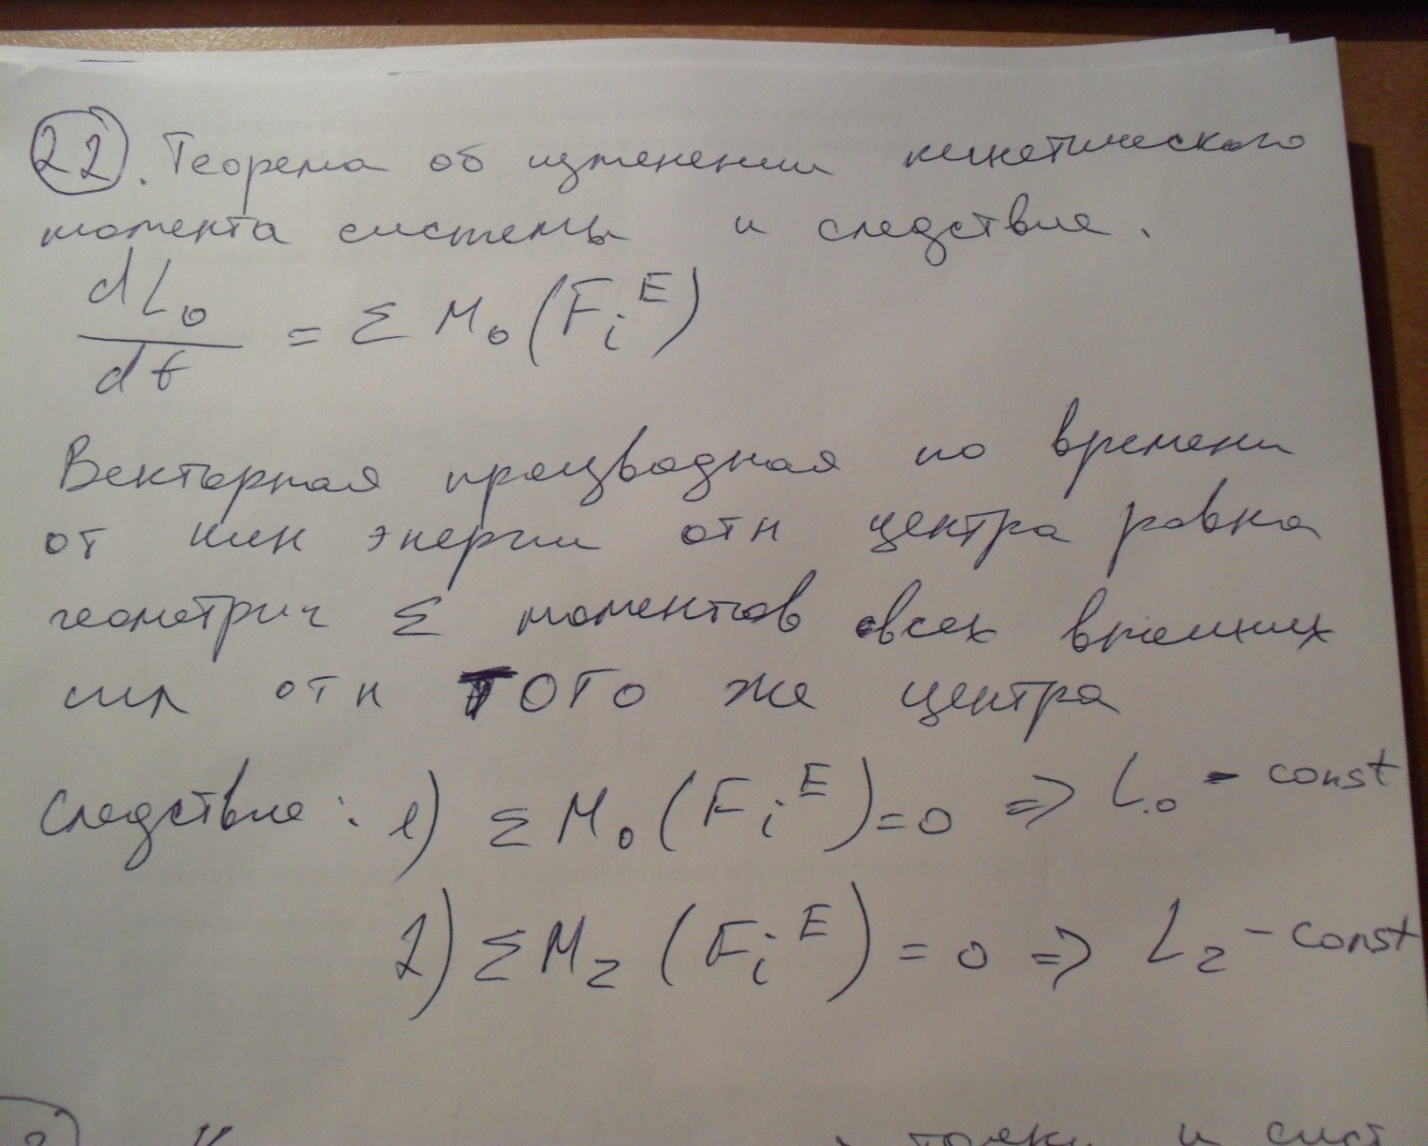 22. Теорема об изменении кинетического
момента системы и следствие.
dL₀/dt = Σ M₀ (F̄ᵢᴱ)
Векторная производная по времени
от кин энергии отн центра равна
геометрич Σ моментов всех внешних
сил отн того же центра
Следствие: 1) Σ M₀ (Fᵢᴱ) = 0 => L₀ - const
2) Σ M_z (Fᵢᴱ) = 0 => L_z - const
точки и сист